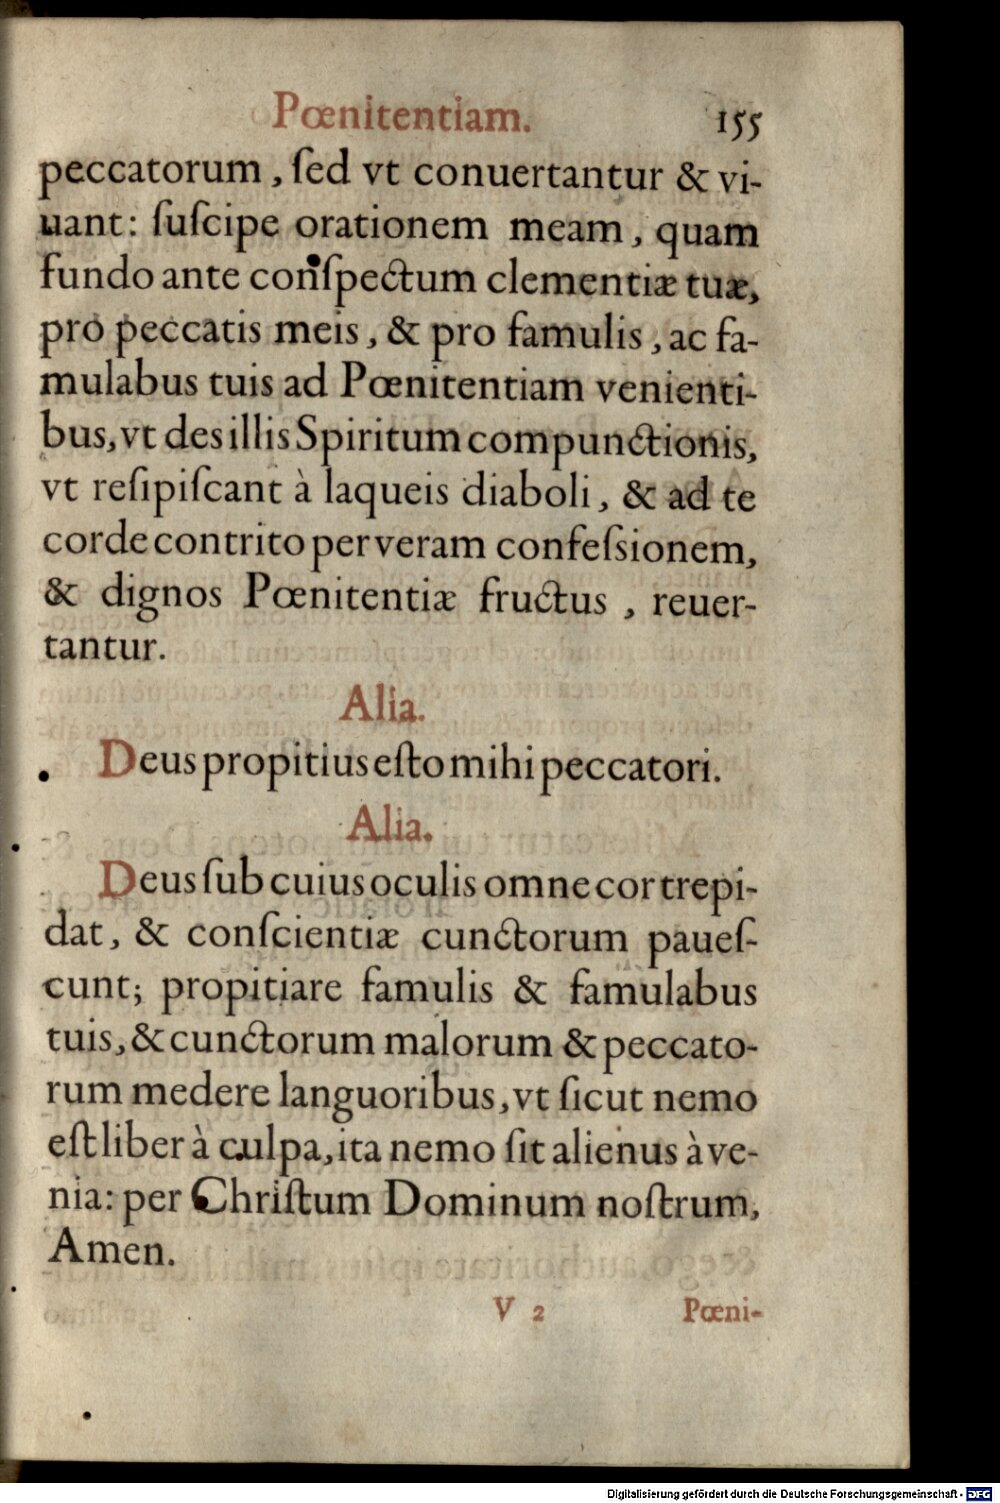 Pœnitentiam. 155
peccatorum, ſed vt conuertantur & vi-
uant: ſuſcipe orationem meam, quam
fundo ante conſpectum clementiæ tuæ,
pro peccatis meis, & pro famulis, ac fa-
mulabus tuis ad Pœnitentiam venienti-
bus, vt des illis Spiritum compunctionis,
vt reſipiſcant à laqueis diaboli, & ad te
corde contrito per veram confeſsionem,
& dignos Pœnitentiæ fructus, reuer-
tantur.
Alia.
Deus propitius eſto mihi peccatori.
Alia.
Deus ſub cuius oculis omne cor trepi-
dat, & conſcientiæ cunctorum paueſ-
cunt; propitiare famulis & famulabus
tuis, & cunctorum malorum & peccato-
rum medere languoribus, vt ſicut nemo
eſt liber à culpa, ita nemo ſit alienus à ve-
nia: per Chriſtum Dominum noſtrum,
Amen.
V 2 Pœni-
Digitalisierung gefördert durch die Deutsche Forschungsgemeinschaft - DFG